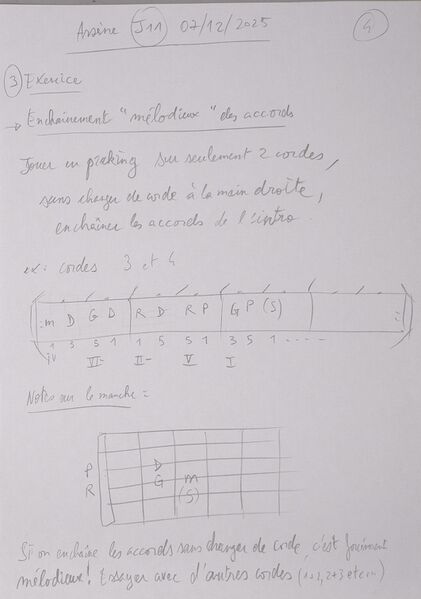 Arsène J11 07/12/2025 4
3 Exercice
→ Enchaînement "mélodieux" des accords
Jouer en picking sur seulement 2 cordes,
sans changer de corde à la main droite,
enchaîner les accords de l'intro.
ex: cordes 3 et 4
m D G D R D R P G P (S)
1 3 5 1 1 5 5 1 3 5 1 - - - -
IV VI- II- V I
Notes sur le manche =
P D
R G m
(S)
Si on enchaîne les accords sans changer de corde, c'est forcément
mélodieux! Essayer avec d'autres cordes (1+2, 2+3 etc...)